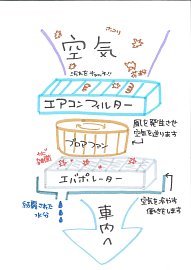 ホコリ
空気
汚れをキャッチ!!
花粉
エアコンフィルター
風を発生させ
空気を送ります
ブロアファン
カビ
雑菌
エバポレーター
結露された
水分
空気を冷やす
働きをします
車内へ